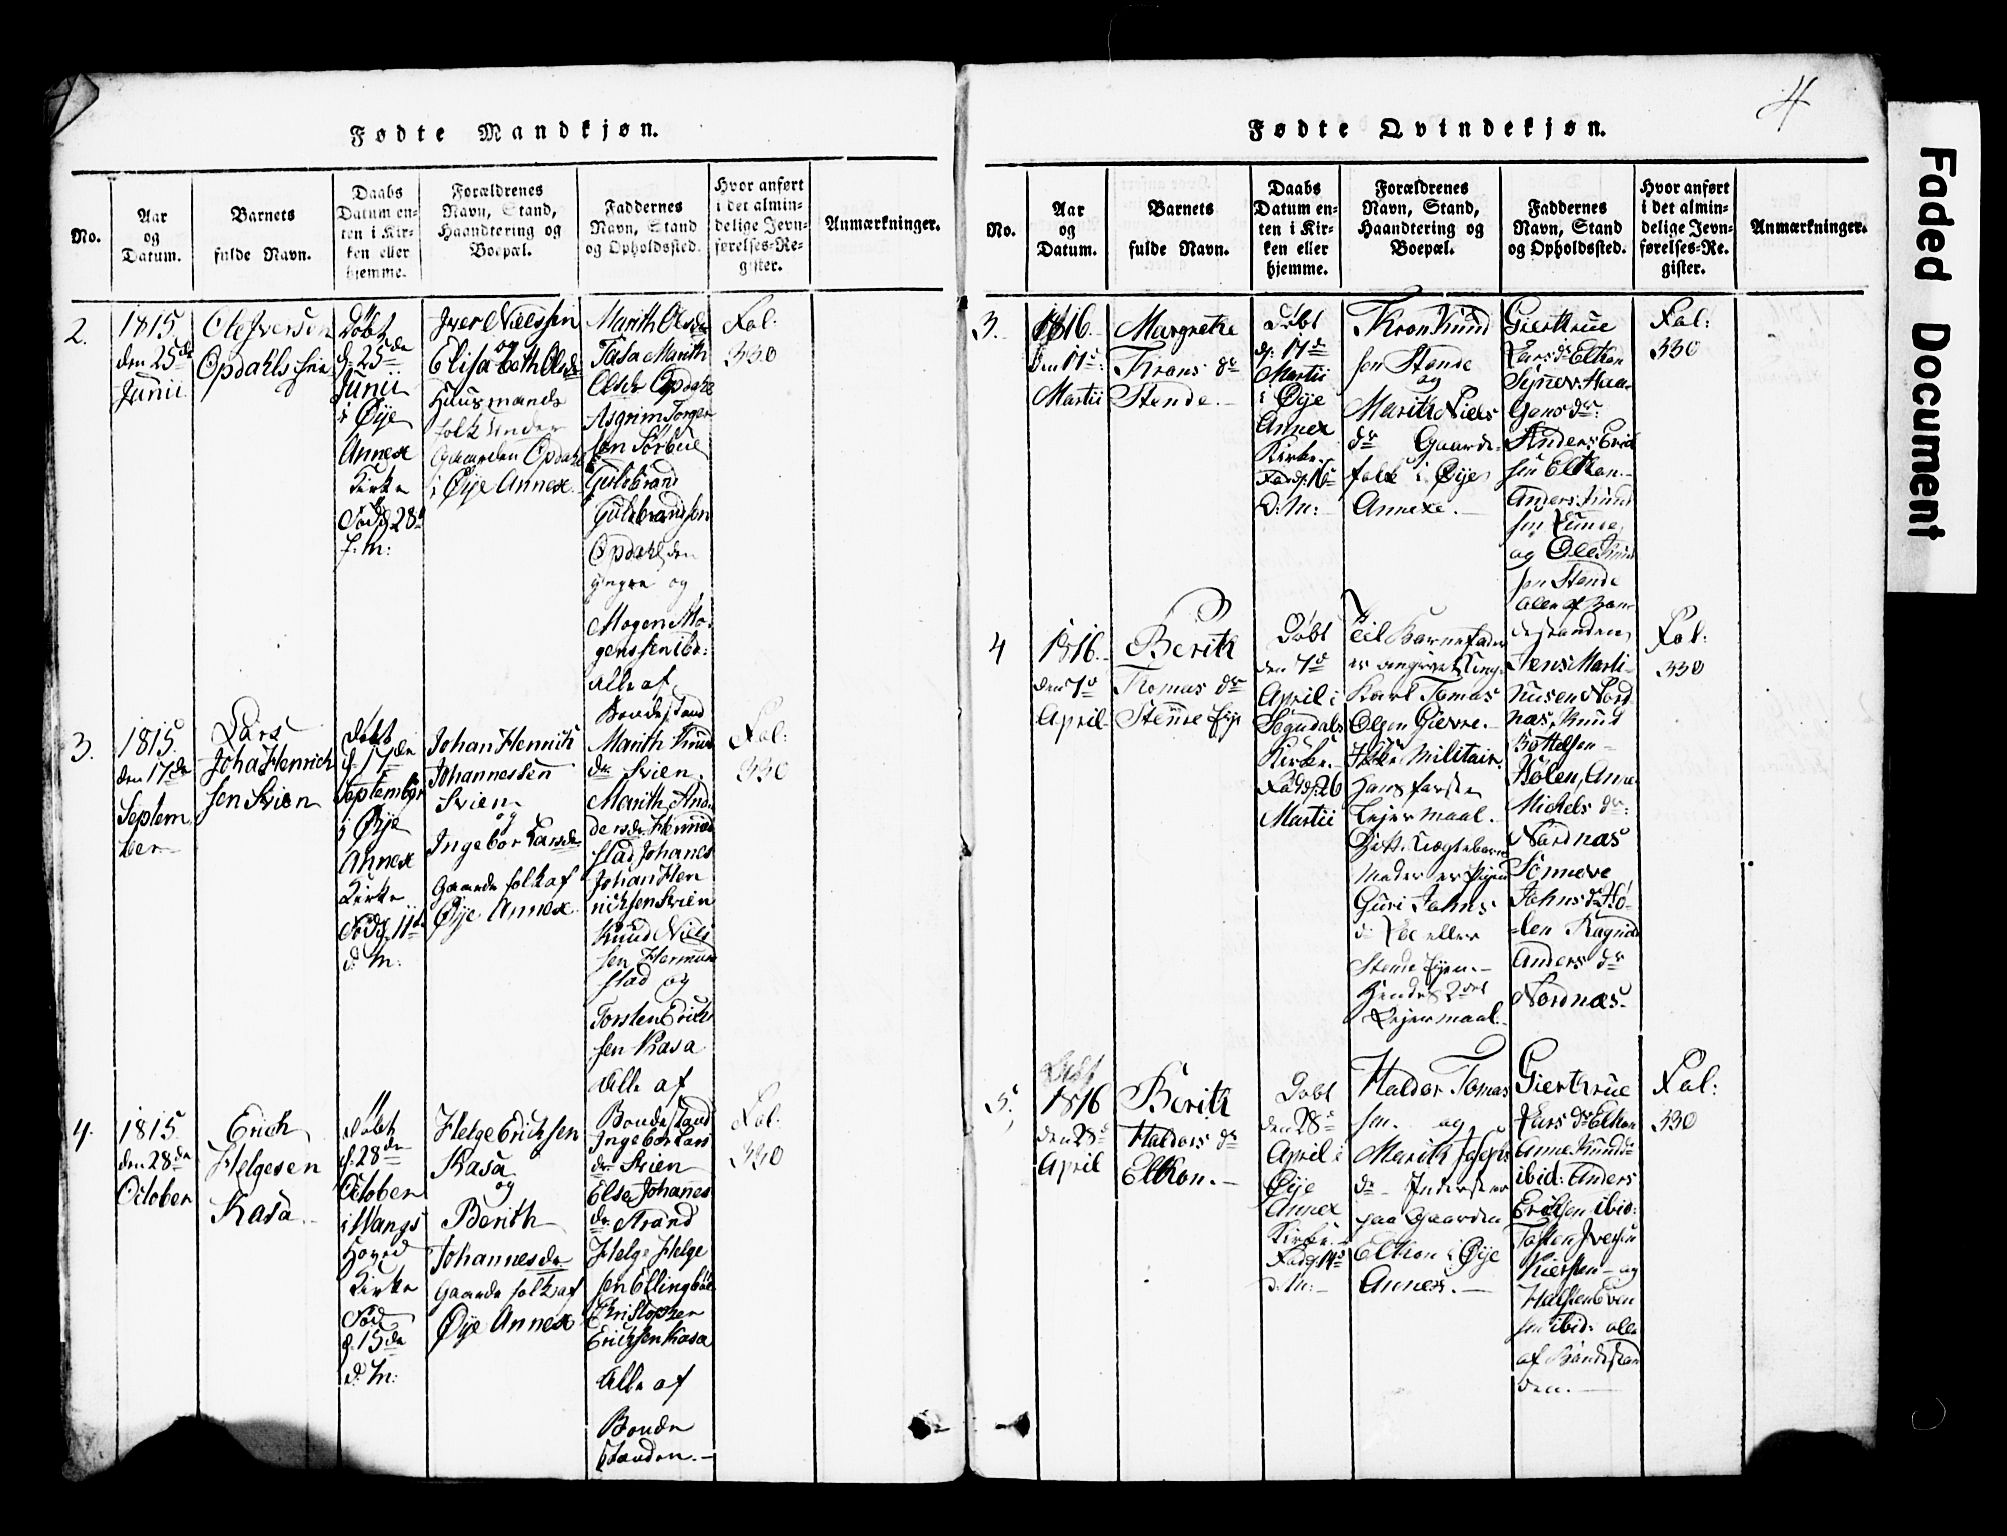 4
Faded Document
Fødte Mandkjøn.
No.
Aar
og
Datum.
Barnets
fulde Navn.
Daabs
Datum en-
ten i Kir-
ken eller
hjemme.
Forældrenes
Navn, Stand,
Haandtering og
Boepæl.
Faddernes
Navn, Stand
og Opholdssted.
Hvor anført
i det almin-
delige Jevn-
førelses-Re-
gister.
Anmærkninger.
2.
1815.
den 25de
Junii
Ole Iversen
Opdahls
Døbt
d. 25de
Junii
i Øije
Annex
Kirke
Fød d. 28
f: M:
Iver Nielssen
og
Elisabeth Olsdr
Huusmands
folk under
Gaarden Opdahl
i Øije Annex
Marith Olsdr
Marith
Olsdr Opdahl
Asgrim Torger
sen Sørbue
Guldbrand
Guldbrandsen
Opdahl den
yngre og
Mogen Mo-
genssen ibd:
Alle af
Bondestand
Fol:
330
3.
1815.
den 17de
Septem
ber
Lars
Joha Henrich
sen Svien
Døbt
d. 17de
September
i Øije
Annex
Kirke
Fød d. 11te
d: M:
Johan Henrich
Johannessen
Svien
og
Ingebor Larsdr
Gaardefolk af
Øije Annex
Marith Knud
dr Svien
Marith And
dersdr Hermund
stad Johanes
Johan Hen
richsen Svien
Knud Niels
sen Hermund
stad og
Torsten Erichs
sen Kasa
Alle af
Bondestand
Fol:
330
4.
1815.
den 28de
October
Erich
Helgesen
Kasa
Døbt
d. 28de
October
i Wangs
Hoved
Kirke
Fød
d. 15de
d: M:
Helge Erichsen
Kasa
og
Berith
Johannesdr
Gaardefolk af
Øije Annex
Ingebor Lars
dr Svien
Else Johannes
dr Strand
Helge Helge
sen Ellingbøe
Christopher
Erichsen Kasa
Alle af
Bonde
standen.
Fol:
330
Fødte Qvindekjøn.
No.
Aar
og
Datum.
Barnets
fulde Navn.
Daabs
Datum en-
ten i Kir-
ken eller
hjemme.
Forældrenes
Navn, Stand,
Haandtering og
Boepæl.
Faddernes
Navn, Stand
og Opholdssted.
Hvor anført
i det almin-
delige Jevn-
førelses-Re-
gister.
Anmærkninger.
3.
1816.
Den 17de
Martii
Margrethe
Trons dr
Stende.
Døbt
d: 17de
Martii
i Øije
Annex
Kirke.
Fød d: 16
d: M:
Tron Knud
sen Stende
og
Marith Niels
dr Gaarde-
folk i Øije
Annexe.
Giertrue
Lars dr Elton
Synev: Haa-
gens dr:
Anders Erich
sen Elton
Anders Knud
sen
og Ole Knud
sen Stende
alle af Bon-
destanden,
Fol:
330
4
1816.
den 7de
April
Berith
Thomas dr
Stende Eje
Døbt
den 7de
April i
Kirke.
Fød d: 26
Martii
Til Barnefader
er angivet Ung-
Karl Tomas
Olsen Gierre.
Ikke Militair.
Hans første
Lejermaal.
Moder er Pigen
Guri Johns
dr eller
Stende Ejen.
Hendes 2det
Lejermaal.
Jens Marti-
nusen Nord
næs, Knud
Bottelsen
Anne
Michels dr:
Nordnæs
Sønneve
Johns dr Hø-
len Ragnild
Anders dr
Nordnæs
Fol:
330
5.
1816
den 28de
April
Berith
Haldors dr
Elton.
Døbt
den 28de
April i
Øije
Annex
Kirke.
Fød d: 14de
d: M:
Haldor Tomas
sen og
Marith
dr Inderster
paa Gaarden
Elton i Øije
Annex.
Giertrue
Lars dr Elton
Anne Knuds dr
ibid: Anders
Erichsen ibid:
Iversen
og
Even
sen ibid: alle
af Bondestan
den.
Fol:
330